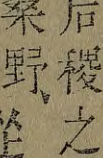 后稷之
桑野、